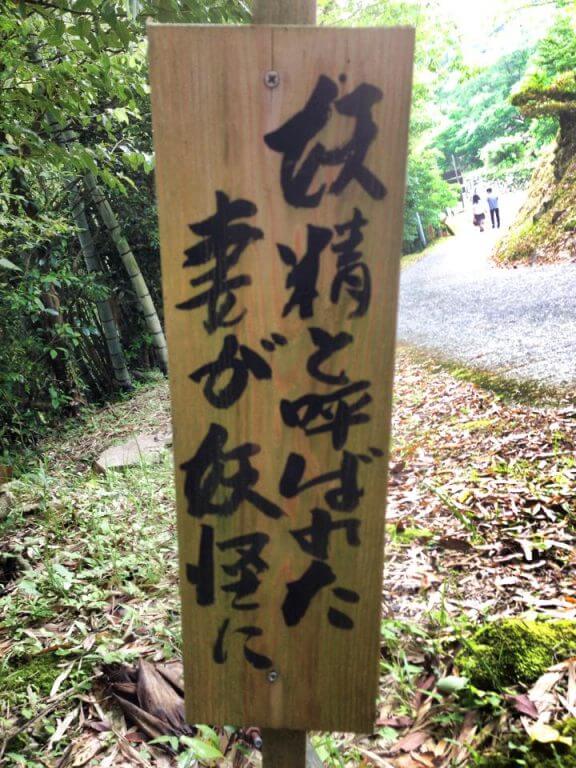 妖精と呼ばれた
妻が妖怪に